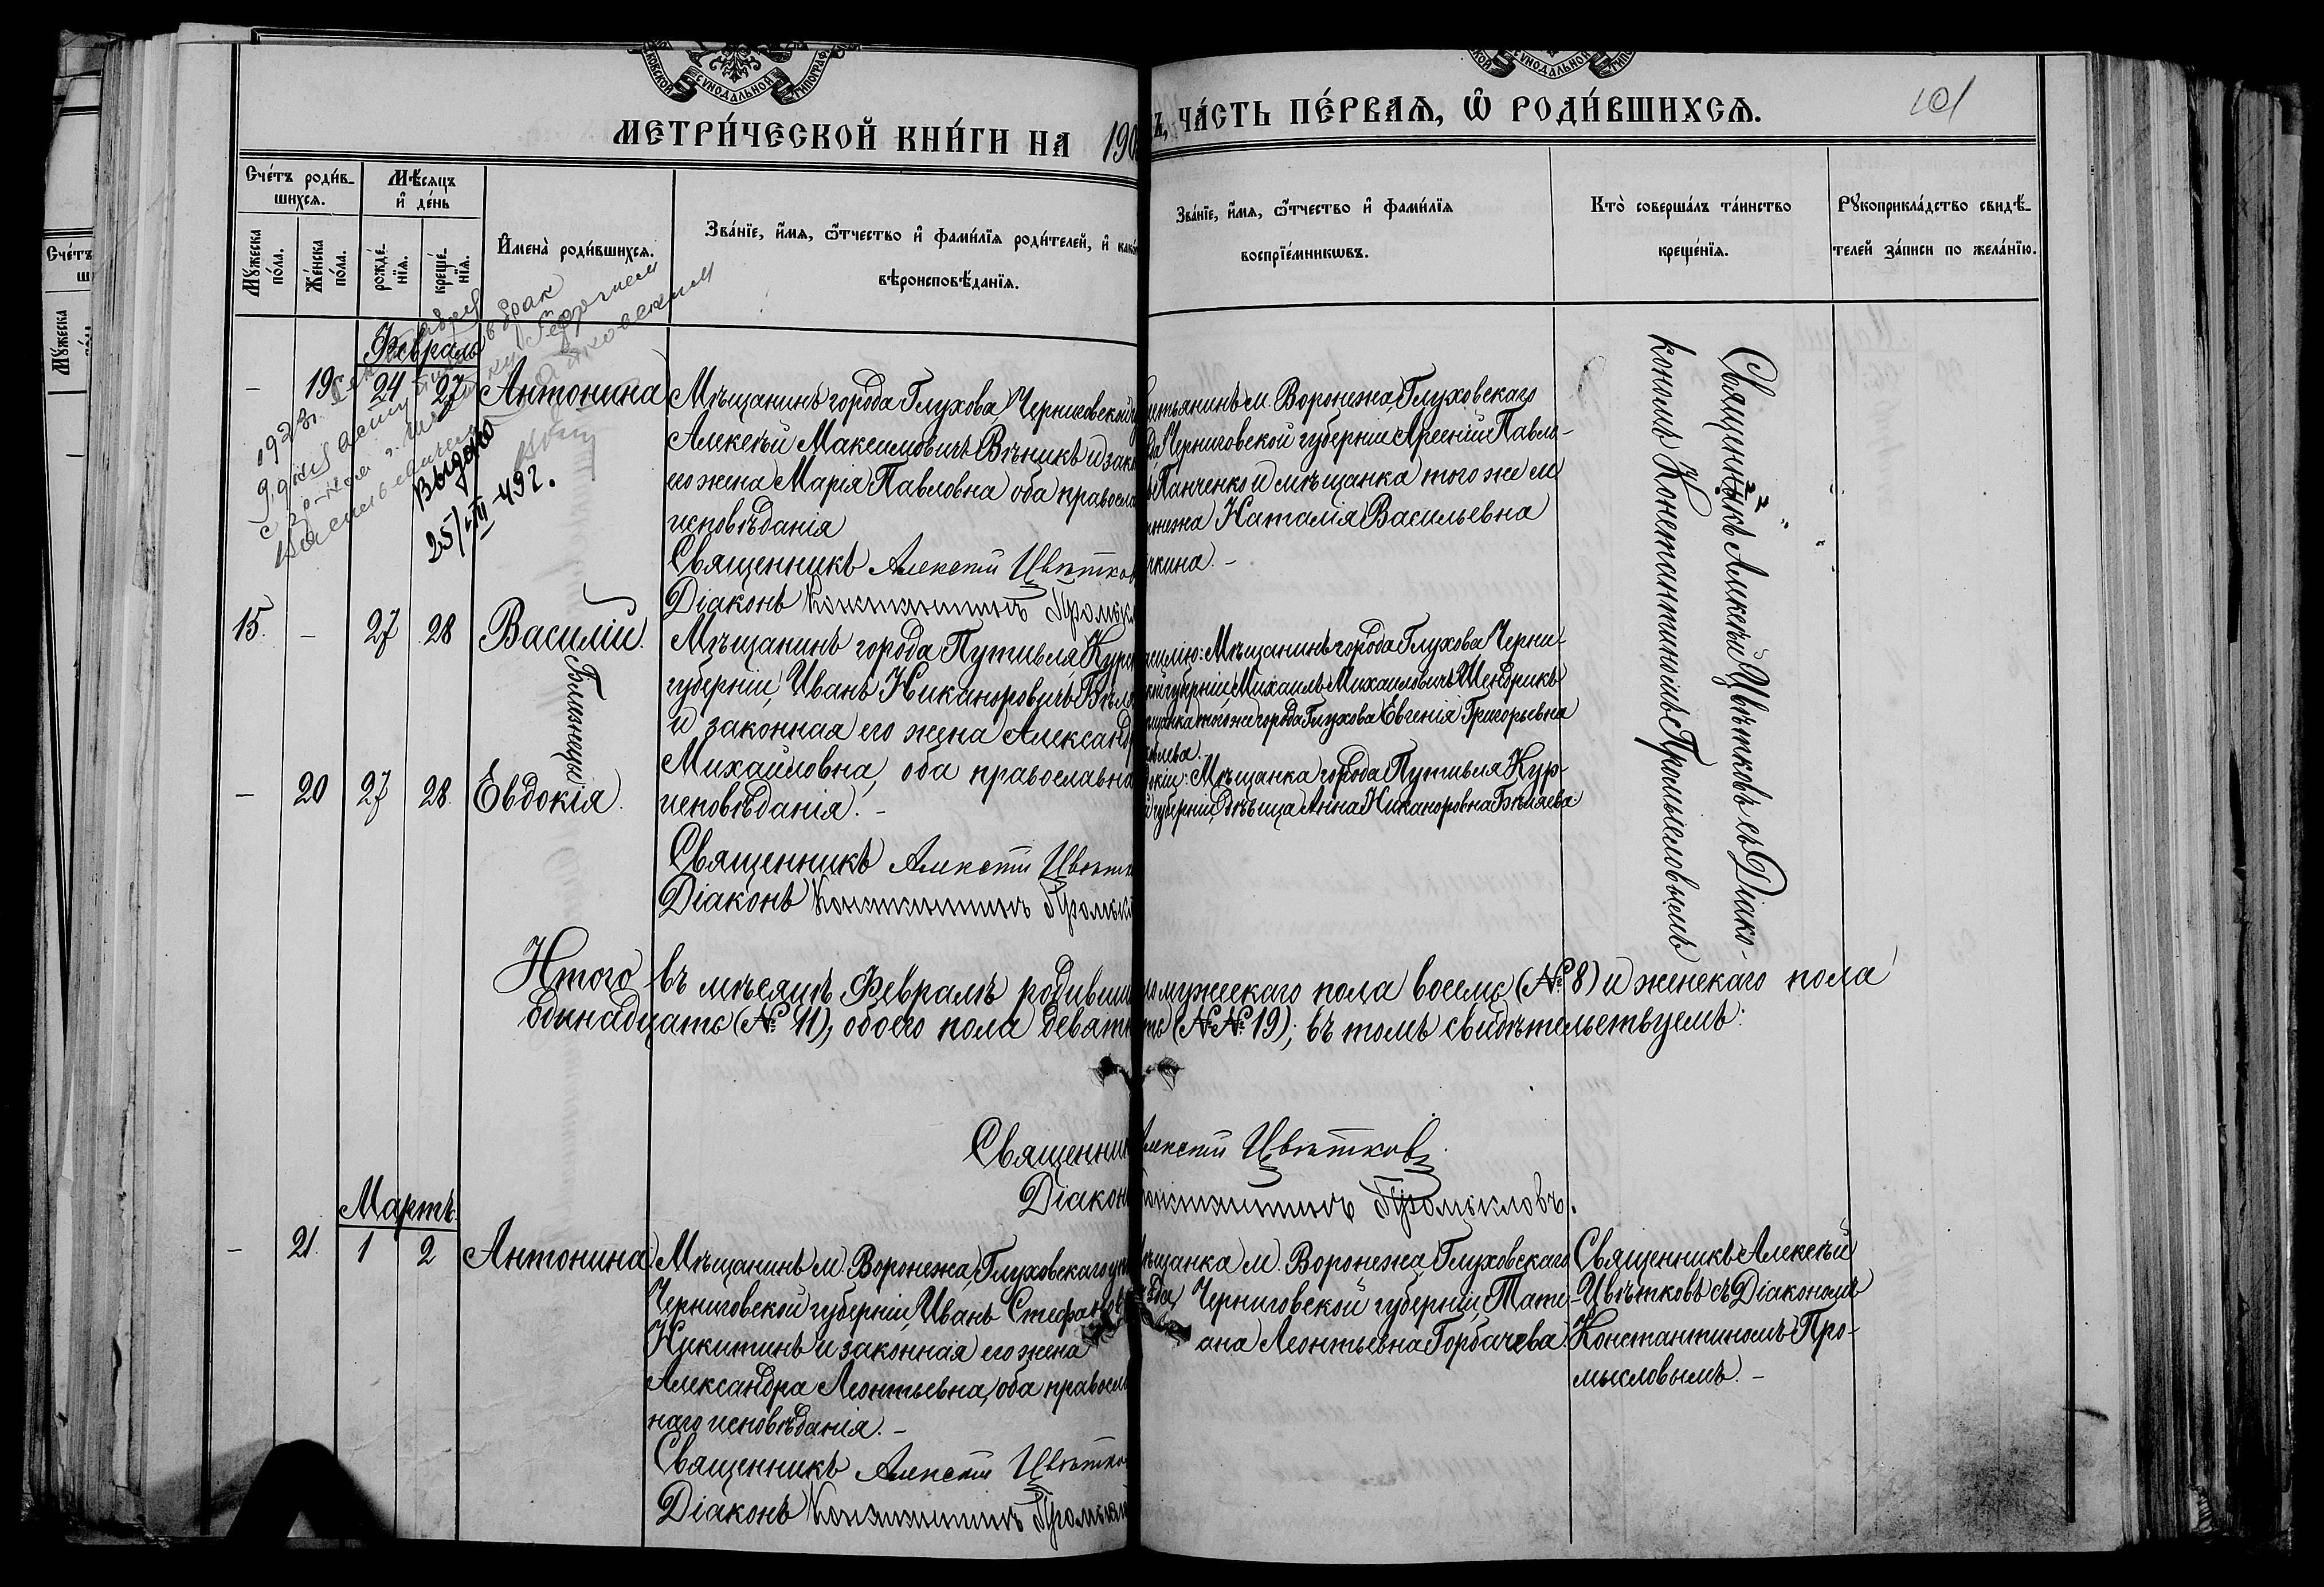 МЕТРИ́ЧЕСКОЙ КНИ́ГИ НА 190
ЧА́СТЬ ПЕ́РВАѦ, Ѿ РОДИ́ВШИХСѦ.
101
Сче́тъ роди́в-
шихсѧ.
Мѣ́сѧцъ
и҆ де́нь
Мꙋжеска
по́ла.
Же́нска
по́ла.
рожде́-
нїѧ.
креще́-
нїѧ.
И҆мена̀ роди́вшихсѧ.
Зва́нїе, и҆́мѧ, ѻ҆́тчество и҆ фами́лїѧ роди́телей, и҆ како́
вѣроисповѣ́данїѧ.
Зва́нїе, и҆́мѧ, ѻ҆́тчество и҆ фами́лїѧ
воспрїе́мникѡвъ.
Кто̀ соверша́лъ та́инство
креще́нїѧ.
Рꙋкоприкла́дство свидѣ́-
телей за́писи по жела́нїю.
Февраль
- 19 24 27 Антонина
Мѣщанинъ города Глухова, Черниговской
Алексѣй Максимовичъ Вѣникъ и зак
его жена Марія Павловна оба правосла
исповѣданія
Священникъ Алексѣй Цвѣтков
Діаконъ Константинъ Промысл
м. Воронежа, Глуховскаго
Черниговской губерніи Арсеній Павло-
Панченко и мѣщанка того же м
Наталія Васильевна
кина. -
Выдано
25/VIII-49г.
15. - 27 28 Василій.
Близнецы
- 20 27 28. Евдокія.
Мѣщанинъ города Путивля, Курс
губерніи, Иванъ Никаноровичъ Бѣля
и законная его жена Александр
Михайловна, оба православна
исповѣданія. -
Священникъ Алексѣй Цвѣтко
Діаконъ Константинъ Промысл
силію: Мѣщанинъ города Глухова, Черни-
губерніи Михаилъ Михаиловичъ Шендрикъ
того же города Глухова Евгенія Григорьевна
Мѣщанка города Путивля Кур-
губерніи, дѣвица Анна Никаноровна Бѣляева
Священникъ Алексѣй Цвѣтковъ съ Діако-
кономъ Константиномъ Промысловымъ
Итого въ мѣсяцѣ Февралѣ родивши мужескаго пола восемь (№ 8) и женскаго пола
одинадцать (№ 11), обоего пола девятн ть (№№ 19); въ томъ свидѣтельствуемъ:
Священник Алексѣй Цвѣтковъ.
Діакон Константинъ Промысловъ.
Мартъ.
- 21. 1 2 Антонина.
Мѣщанинъ м. Воронежа, Глуховскаго уѣ
Черниговской губерніи, Иванъ Стефанов
Никитинъ и законная его жена
Александра Леонтьевна, оба правосла
наго исповѣданія. -
Священникъ Алексѣй Цвѣтко
Діаконъ Константинъ Промысл
Мѣщанка м. Воронежа, Глуховскаго
ѣзда, Черниговской губерніи, Тати-
ана Леонтьевна Горбачева.
Священникъ Алексѣй
Цвѣтковъ съ Діакономъ
Константиномъ Про-
мысловымъ. -